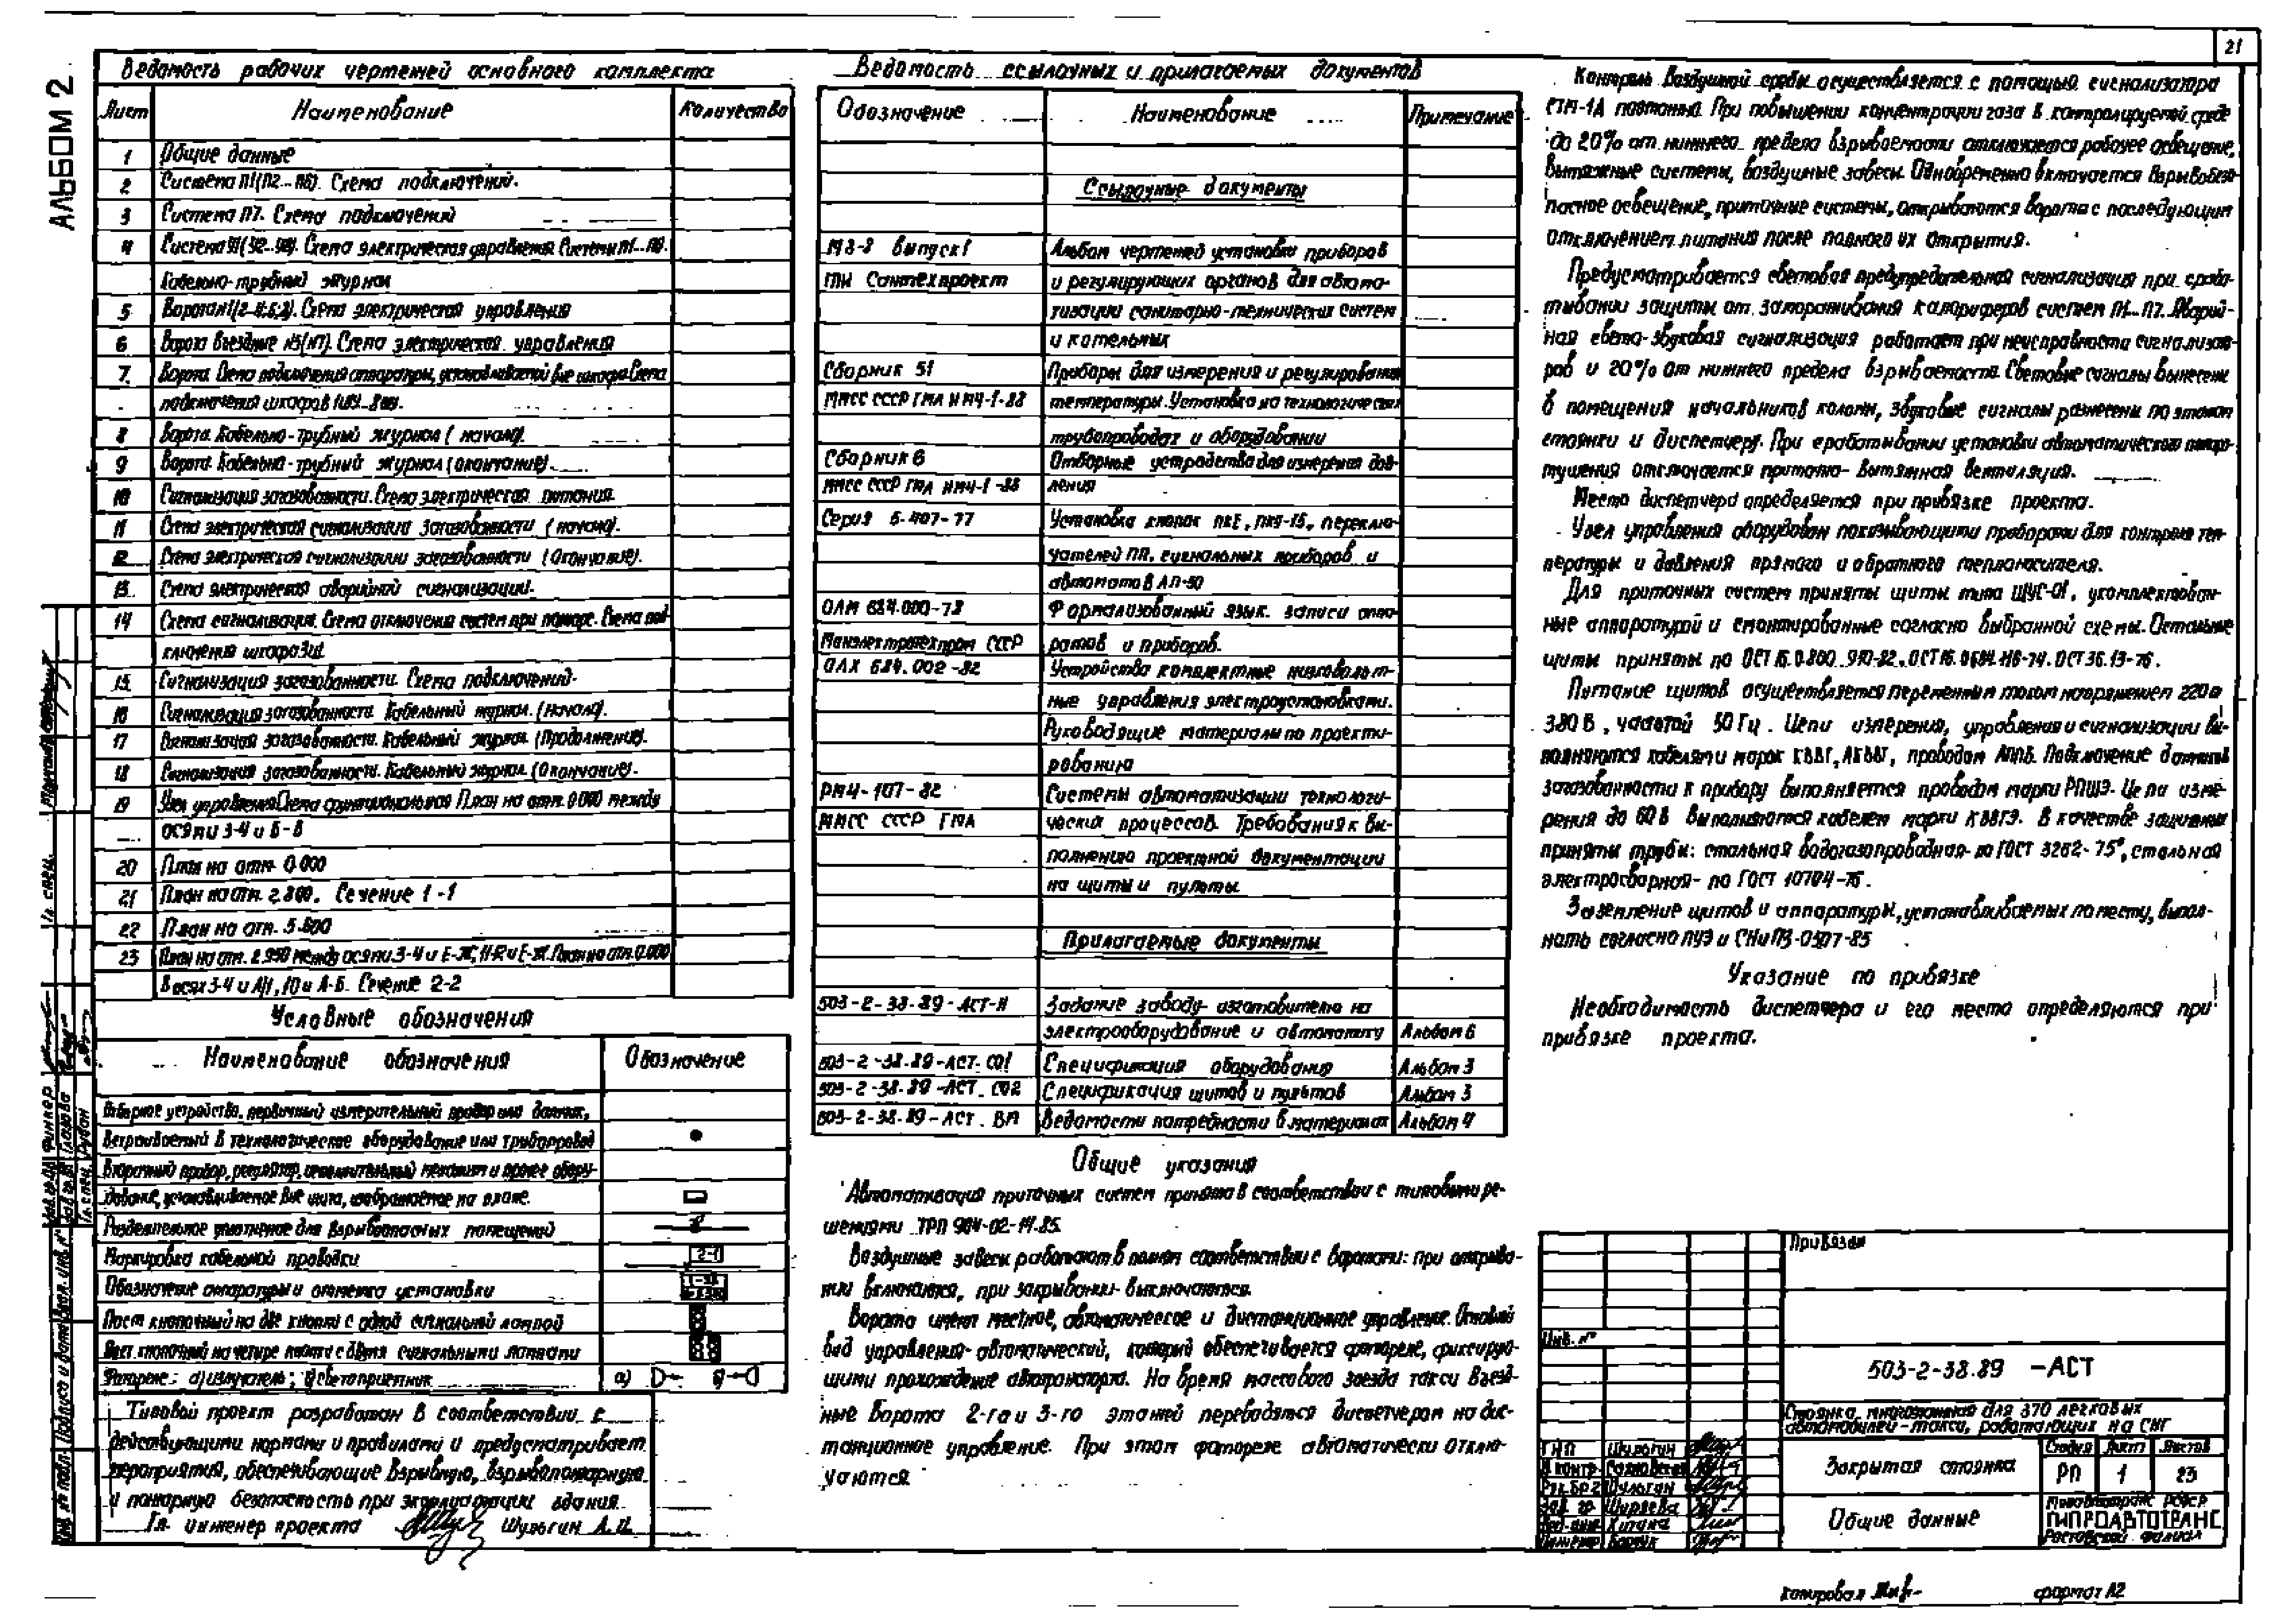 21
АЛЬБОМ 2
Ведомость рабочих чертежей основного комплекта
Лист Наименование Количество
1 Общие данные
2 Система П1(П2...П6). Схема подключений.
3 Система П7. Схема подключений
4 Схема электрическая управления
Кабельно-трубный журнал
5 Схема электрическая управления
6 Ворота въездные №3(№7). Схема электрическая управления
7 Ворота. Схема подключения аппаратуры, устанавливаемой вне шкафа. Схема
подключения шкафов
8 Ворота. Кабельно-трубный журнал (начало).
9 Ворота. Кабельно-трубный журнал (окончание).
10 Сигнализация загазованности. Схема электрическая питания.
11 Схема электрическая сигнализации загазованности (начало).
12 Схема электрическая сигнализации загазованности (Окончание).
13 Схема электрическая аварийной сигнализации.
14 Схема сигнализации. Схема отключения систем при пожаре. Схема под-
ключения шкафа
15 Сигнализация загазованности. Схема подключений.
16 Сигнализация загазованности. Кабельный журнал. (Начало).
17 Сигнализация загазованности. Кабельный журнал. (Продолжение).
18 Сигнализация загазованности. Кабельный журнал. (Окончание).
19 Узел управления. Схема функциональная. План на отм. 0.000 между
осями 3-4 и Б-В
20 План на отм. 0.000
21 План на отм. 2.800. Сечение 1-1
22 План на отм. 5.600
23 План на отм. 2.950 между осями 3-4 и Е-Ж,
В осях 3-4 и А/1, 10 и А-Б. Сечение 2-2
Условные обозначения
Наименование обозначения Обозначение
Отборное устройство, первичный измерительный прибор или датчик,
встраиваемый в технологическое оборудование или трубопровод
Вторичный прибор, регулятор, исполнительный механизм и прочее обору-
дование, устанавливаемое вне щита, изображаемое на плане.
Разделительное уплотнение для взрывоопасных помещений
Маркировка кабельной проводки 2-1
Обозначение аппаратуры и отметка установки
Пост кнопочный на две кнопки с одной сигнальной лампой
Пост кнопочный на четыре кнопки с двумя сигнальными лампами
Фотореле: а) излучатель; б) светоприемник а) б)
Типовой проект разработан в соответствии с
действующими нормами и правилами и предусматривает
мероприятия, обеспечивающие взрывную, взрывопожарную
и пожарную безопасность при эксплуатации здания.
Гл. инженер проекта Шульгин А.И.
Ведомость ссылочных и прилагаемых документов
Обозначение Наименование Примечание
Ссылочные документы
МЗ-2 Выпуск 1 Альбом чертежей установки приборов
ГПИ Сантехпроект и регулирующих органов для автома-
тизации санитарно-технических систем
и котельных
Сборник 51 Приборы для измерения и регулирования
ММСС СССР ГМА температуры. Установка на технологических
трубопроводах и оборудовании
Сборник 6 Отборные устройства для измерения дав-
ММСС СССР ГМА ления
Серия 5-407-77 Установка кнопок ПКЕ, ПКУ-15, переклю-
чателей ПП, сигнальных приборов и
автоматов АП-50
ОЛМ 684.000-72 Формализованный язык записи аппа-
Минэлектротехпром СССР ратов и приборов.
ОЛХ 684.002-82 Устройства комплектные низковольт-
ные управления электроустановками.
Руководящие материалы по проекти-
рованию
РМ4-107-82 Системы автоматизации технологи-
ММСС СССР ГМА ческих процессов. Требования к вы-
полнению проектной документации
на щиты и пульты
Прилагаемые документы
503-2-38.89-АСТ-Н Задание заводу-изготовителю на
электрооборудование и автоматику Альбом 6
503-2-38.89-АСТ.СО1 Спецификация оборудования Альбом 3
503-2-38.89-АСТ.СО2 Спецификация щитов и пультов Альбом 3
503-2-38.89-АСТ.ВМ Ведомости потребности в материалах Альбом 4
Общие указания
Автоматизация приточных систем принята в соответствии с типовыми ре-
шениями ТРП 904-02-14.85.
Воздушные завесы работают в полном соответствии с воротами: при открыва-
нии включаются, при закрывании-выключаются.
Ворота имеют местное, автоматическое и дистанционное управление. Основной
вид управления-автоматический, который обеспечивается фотореле, фиксирую-
щими прохождение автотранспорта. На время массового заезда такси въезд-
ные ворота 2-го и 3-го этажей переводятся диспетчером на дис-
танционное управление. При этом фотореле автоматически отклю-
чаются.
Контроль воздушной среды осуществляется с помощью сигнализатора
СТМ-1Д поэтажно. При повышении концентрации газа в контролируемой среде
до 20% от нижнего предела взрываемости отключается рабочее освещение,
вытяжные системы, воздушные завесы. Одновременно включается взрывобезо-
пасное освещение, приточные системы, открываются ворота с последующим
отключением питания после полного их открытия.
Предусматривается световая предупредительная сигнализация при сраба-
тывании защиты от замораживания калориферов систем П1...П7. Аварий-
ная свето-звуковая сигнализация работает при неисправности сигнализато-
ров и 20% от нижнего предела взрываемости. Световые сигналы вынесены
в помещения начальников колонн, звуковые сигналы разнесены по этажам
стоянки и диспетчеру. При срабатывании установки автоматического пожаро-
тушения отключается приточно-вытяжная вентиляция.
Место диспетчера определяется при привязке проекта.
Узел управления оборудован показывающими приборами для контроля тем-
пературы и давления прямого и обратного теплоносителя.
Для приточных систем приняты щиты типа ЩУС-01, укомплектован-
ные аппаратурой и смонтированные согласно выбранной схемы. Остальные
щиты приняты по ОСТ 16.0.800.910-82, ОСТ 16.0.684.116-74, ОСТ 36.13-76.
Питание щитов осуществляется переменным током напряжением 220 и
380 В, частотой 50 Гц. Цепи измерения, управления и сигнализации вы-
полняются кабелями марок КВВГ, АКВВГ, проводом АППВ. Подключение датчика
загазованности к прибору выполняется проводом марки РПШЭ. Цепи изме-
рения до 60 В выполняются кабелем марки КВВГЭ. В качестве защитных
приняты трубы: стальная водогазопроводная-по ГОСТ 3262-75*, стальная
электросварная-по ГОСТ 10704-76.
Заземление щитов и аппаратуры, устанавливаемых по месту, выпол-
нить согласно ПУЭ и СНиП3-0507-85
Указание по привязке
Необходимость диспетчера и его место определяются при
привязке проекта.
Привязан
Инв. №
503-2-38.89 -АСТ
Стоянка многоэтажная для 370 легковых
автомобилей-такси, работающих на СНГ
ГИП Шульгин
Н.контр.
Рук.бр. Шульгин
Зав. гр. Шуряева
Закрытая стоянка
Стадия Лист Листов
РП 1 23
Общие данные
Минавтотранс РСФСР
ГИПРОАВТОТРАНС
Ростовский филиал
Гл. спец.
Финкер
Глазова
Гл. спец. Дубан
Инв. № подл. Подпись и дата Взам. инв. №
Копировал формат А2